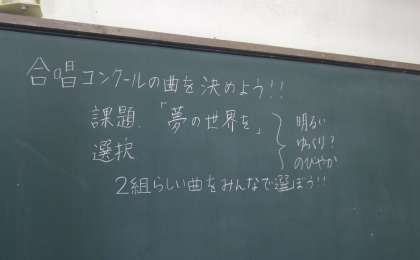 合唱コンクールの曲を決めよう!!
課題.「夢の世界を」
選択
明るい
ゆっくり?
のびやか
2組らしい曲をみんなで選ぼう!!